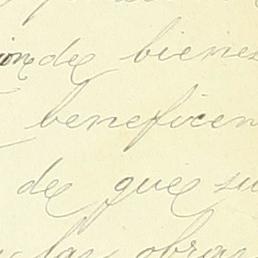 ion de bienes
beneficen
de que su
las obras